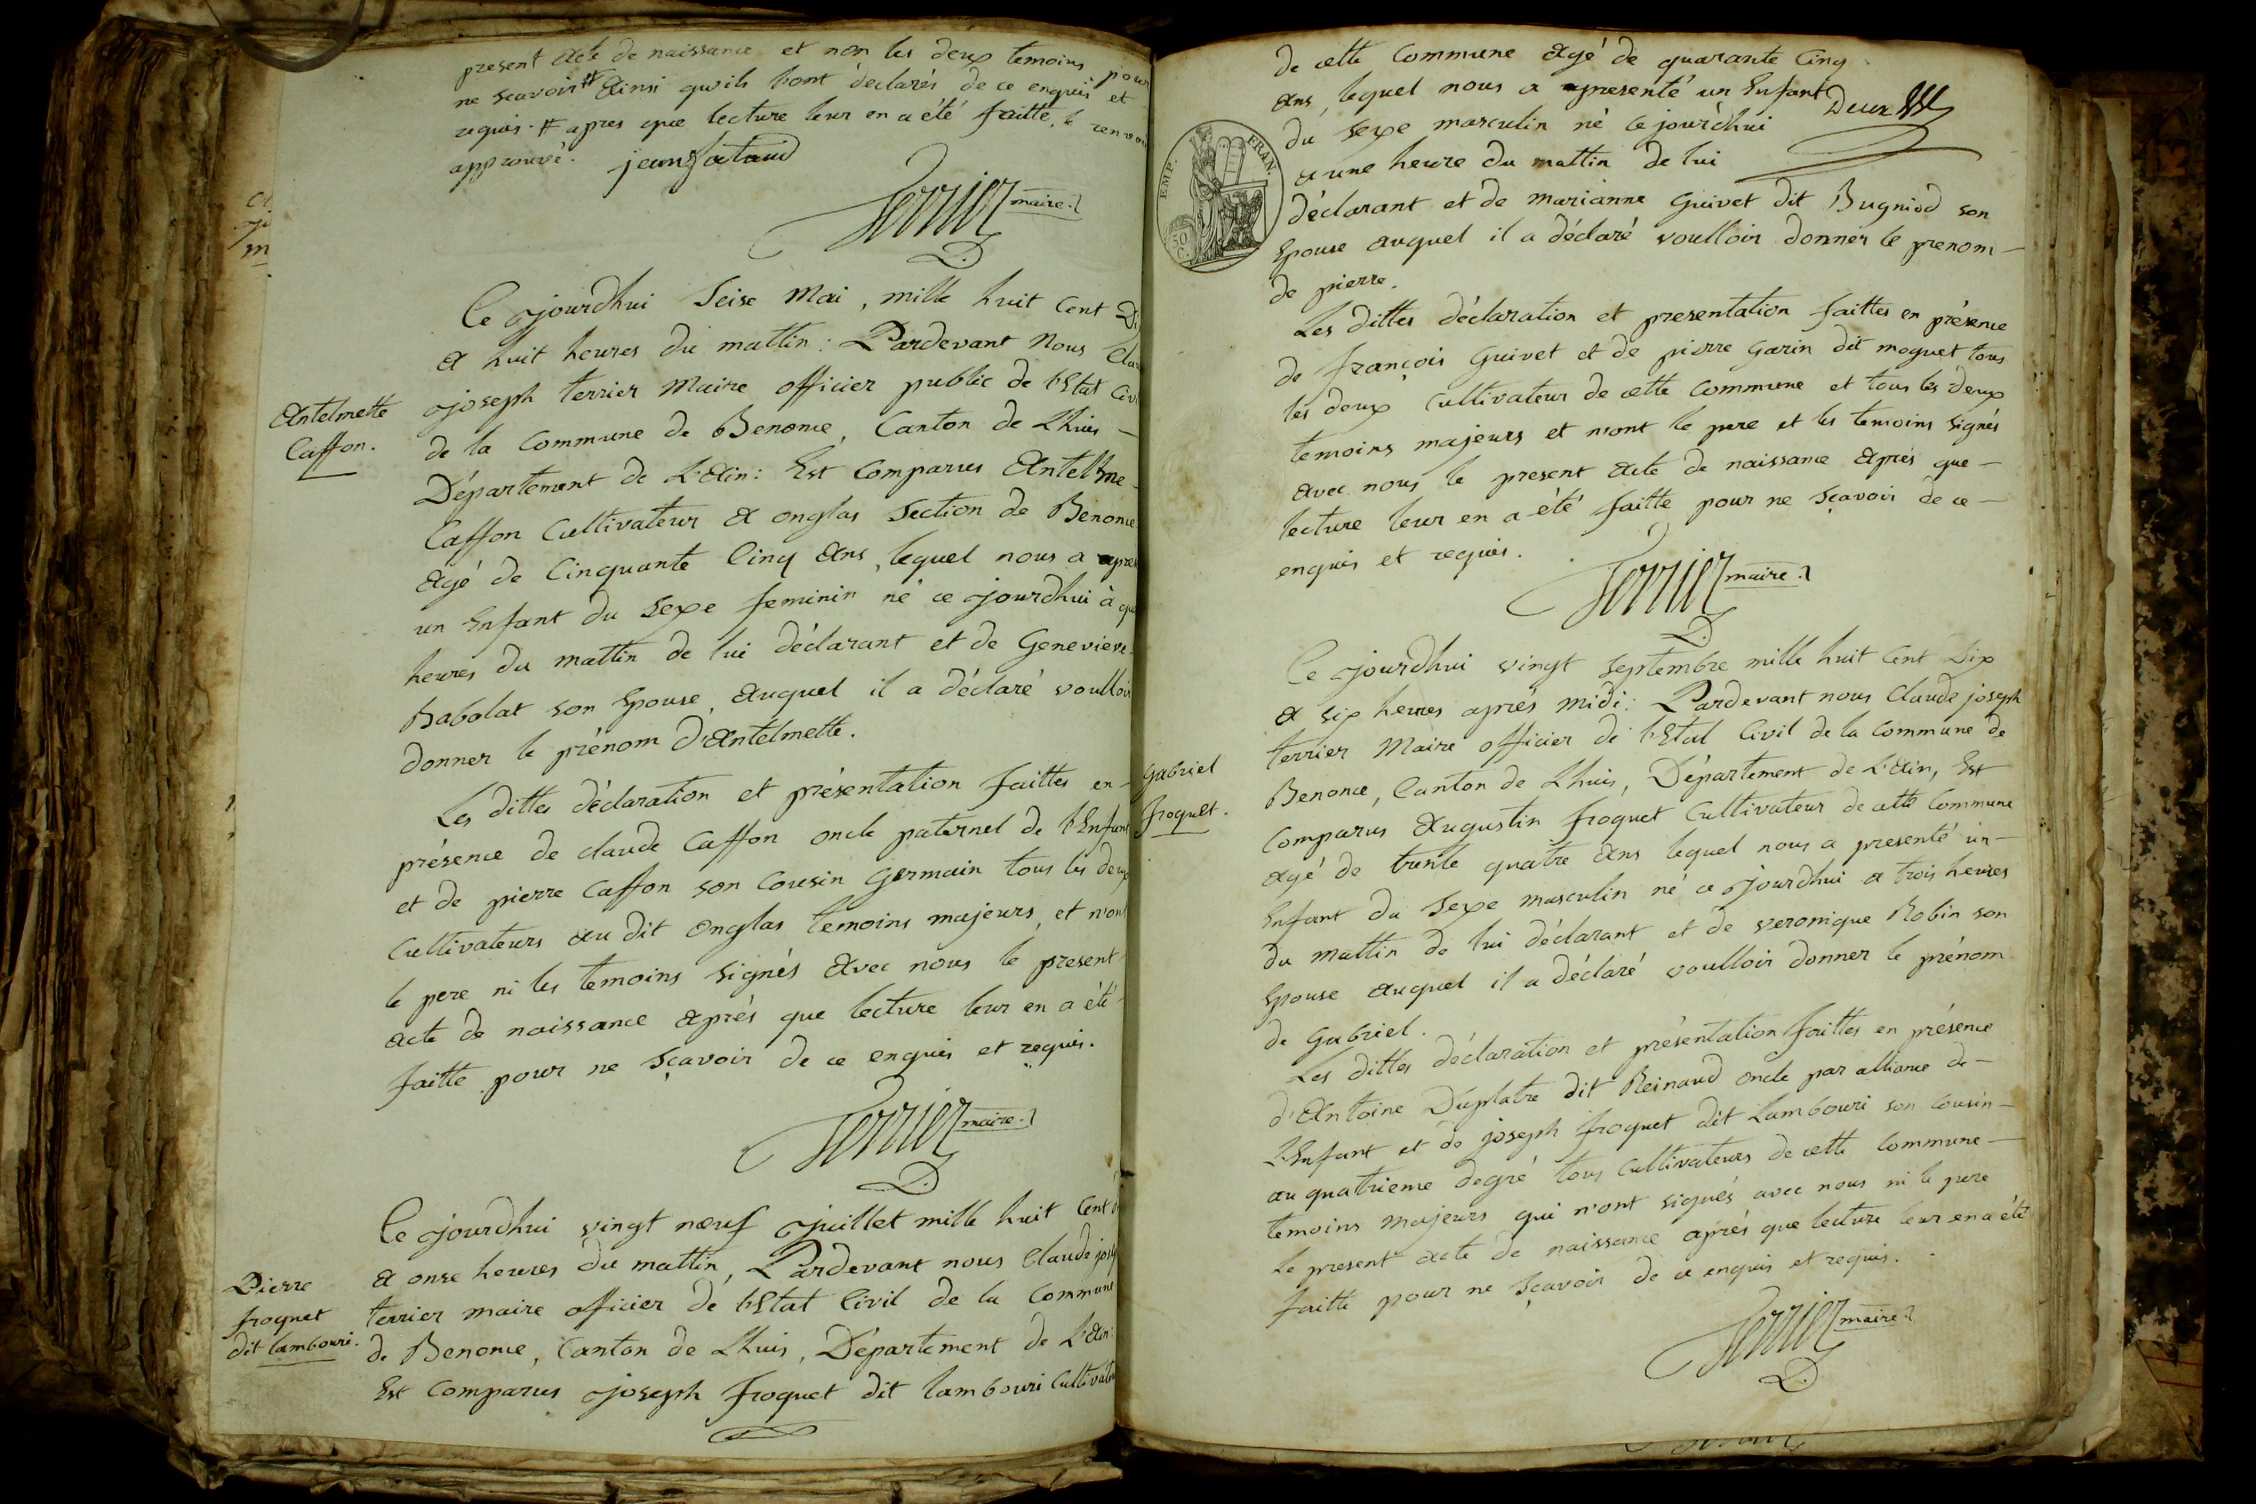 present acte de naissance et non les deux temoins pour
ne sçavoir # Ainsi qu'ils l'ont déclarés de ce enquis et
requis. # apres que lecture leur en a été faitte, le renvoi
approuvé. jean
Terrier maire
Ce jourdhui Seise Mai, mille huit Cent Di
a huit heures du mattin: Pardevant Nous Clau
joseph terrier Maire officier public de l'Etat Civi
Antelmette
Caffon.
de la Commune de Benonce, Canton de Lhuis
Département de L'Ain: Est Comparus Antelhme
Caffon Cultivateur a onglas Section de Benonce
agé de Cinquante Cinq Ans, lequel nous a pres
un Enfant du Sexe feminin né ce jourdhui à qu
heures du mattin de lui déclarant et de Genevieve
Babolat son Epouse, auquel il a déclaré voulloir
donner le prénom d'Antelmette.
Les dittes déclaration et présentation faittes en
présence de claude Caffon oncle paternel de l'Enfant
et de pierre Caffon son Cousin Germain tous les deux
Cultivateurs au dit Onglas temoins majeurs, et n'ont
le pere ni les temoins signés avec nous le present
acte de naissance après que lecture leur en a été
faitte pour ne sçavoir de ce enquis et requis.
Terrier maire
Ce jourdhui vingt nœuf juillet mille huit Cent d
a onse heures du mattin, Pardevant nous Claude jose
Pierre
froquet
dit lambouri.
terrier maire officier de l'Etat Civil de la Commune
de Benonce, Canton de Lhuis, Département de L'Ain:
Est Comparus joseph froquet dit lambouri Cultivateu
de cette Commune agé de quarante Cinq
ans, lequel nous a presenté un Enfant
Deux
du Sexe masculin né ce jourdhui
EMP. FRAN.
50 C.
a une heure du mattin de lui
déclarant et de marianne Guivet dit Bugniod son
Epouse auquel il a déclaré voulloir donner le prenom
de pierre.
Les dittes déclaration et presentation faittes en présence
de françois Guivet et de pierre Garin dit moguet tous
les deux Cultivateur de cette Commune et tous les deux
temoins majeurs et n'ont le pere et les temoins signés
avec nous le present acte de naissance après que
lecture leur en a été faitte pour ne sçavoir de ce
enquis et requis.
Terrier maire
Ce jourdhui vingt Septembre mille huit Cent Dix
a six heures après midi: Pardevant nous Claude joseph
terrier Maire officier de l'Etat Civil de la Commune de
Gabriel
froquet.
Benonce, Canton de Lhuis, Département de L'Ain, Est
Comparus Augustin froquet Cultivateur de cette Commune
agé de trente quatre ans lequel nous a presenté un
Enfant du Sexe masculin né ce jourdhui a trois heures
du mattin de lui déclarant et de veronique Robin son
Epouse auquel il a déclaré voulloir donner le prénom
de Gabriel.
Les dittes déclaration et présentation faittes en présence
d'Antoine Duplatre dit Reinaud oncle par alliance de
l'Enfant et de joseph froquet dit Lambouri son Cousin
au quatrieme degré tous Cultivateurs de cette Commune
temoins majeurs qui n'ont signés avec nous ni le pere
le present acte de naissance après que lecture leur en a été
faitte pour ne sçavoir de ce enquis et requis.
Terrier maire